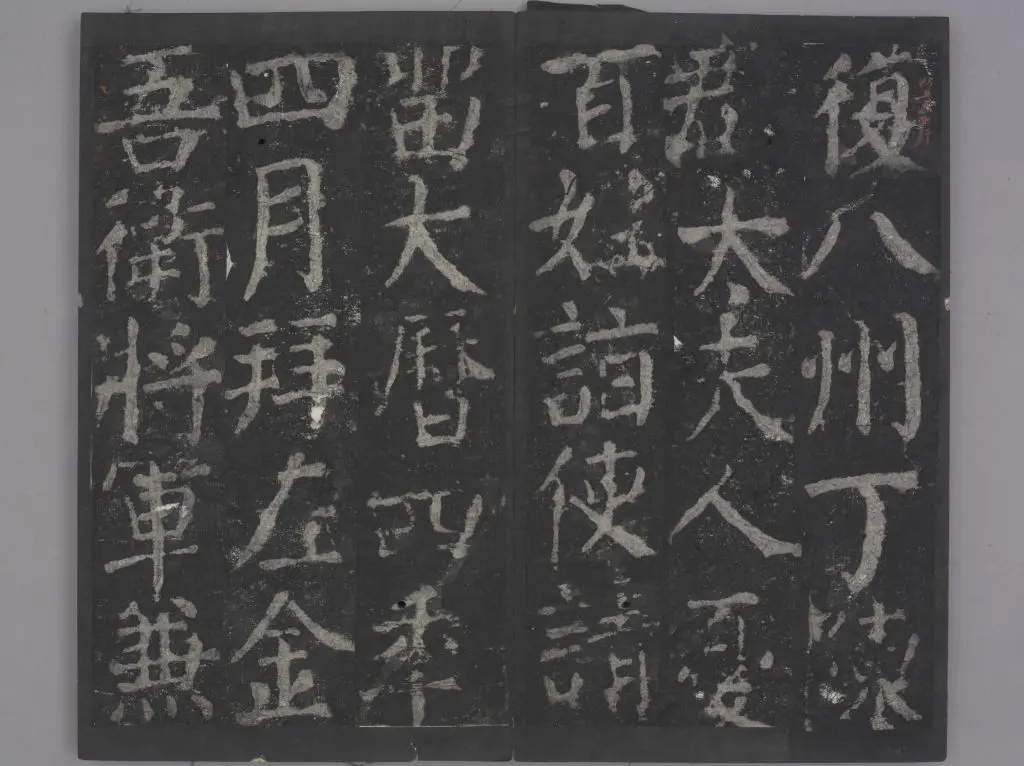 復八州丁陳
郡太夫人憂
百姓詣使請
留大曆四年
四月拜左金
吾衛將軍兼